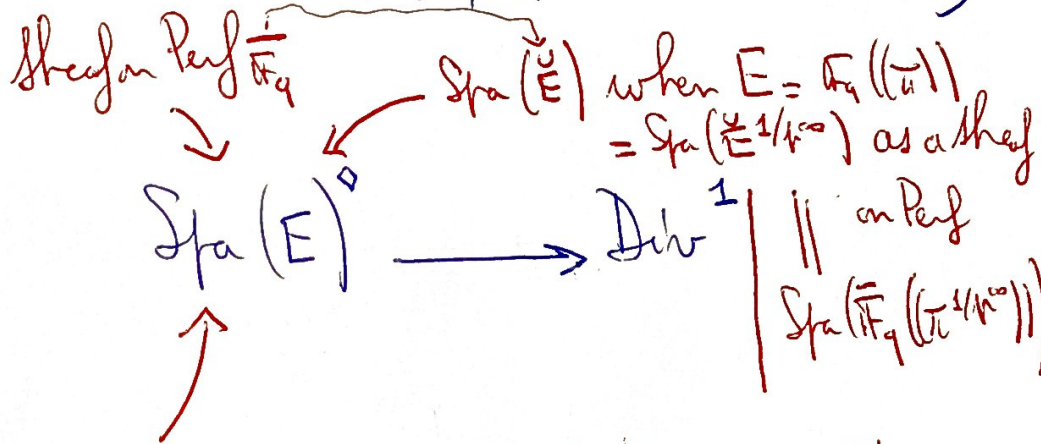 Sheaf on Perf_{\overline{F}_q}
Spa(Ĕ) when E = F_q((π))
= Spa(Ĕ^{1/p^∞}) as a sheaf
on Perf
Spa(E)^◇ ⟶ Div^1
||
Spa(\overline{F}_q((π^{1/p^∞})))